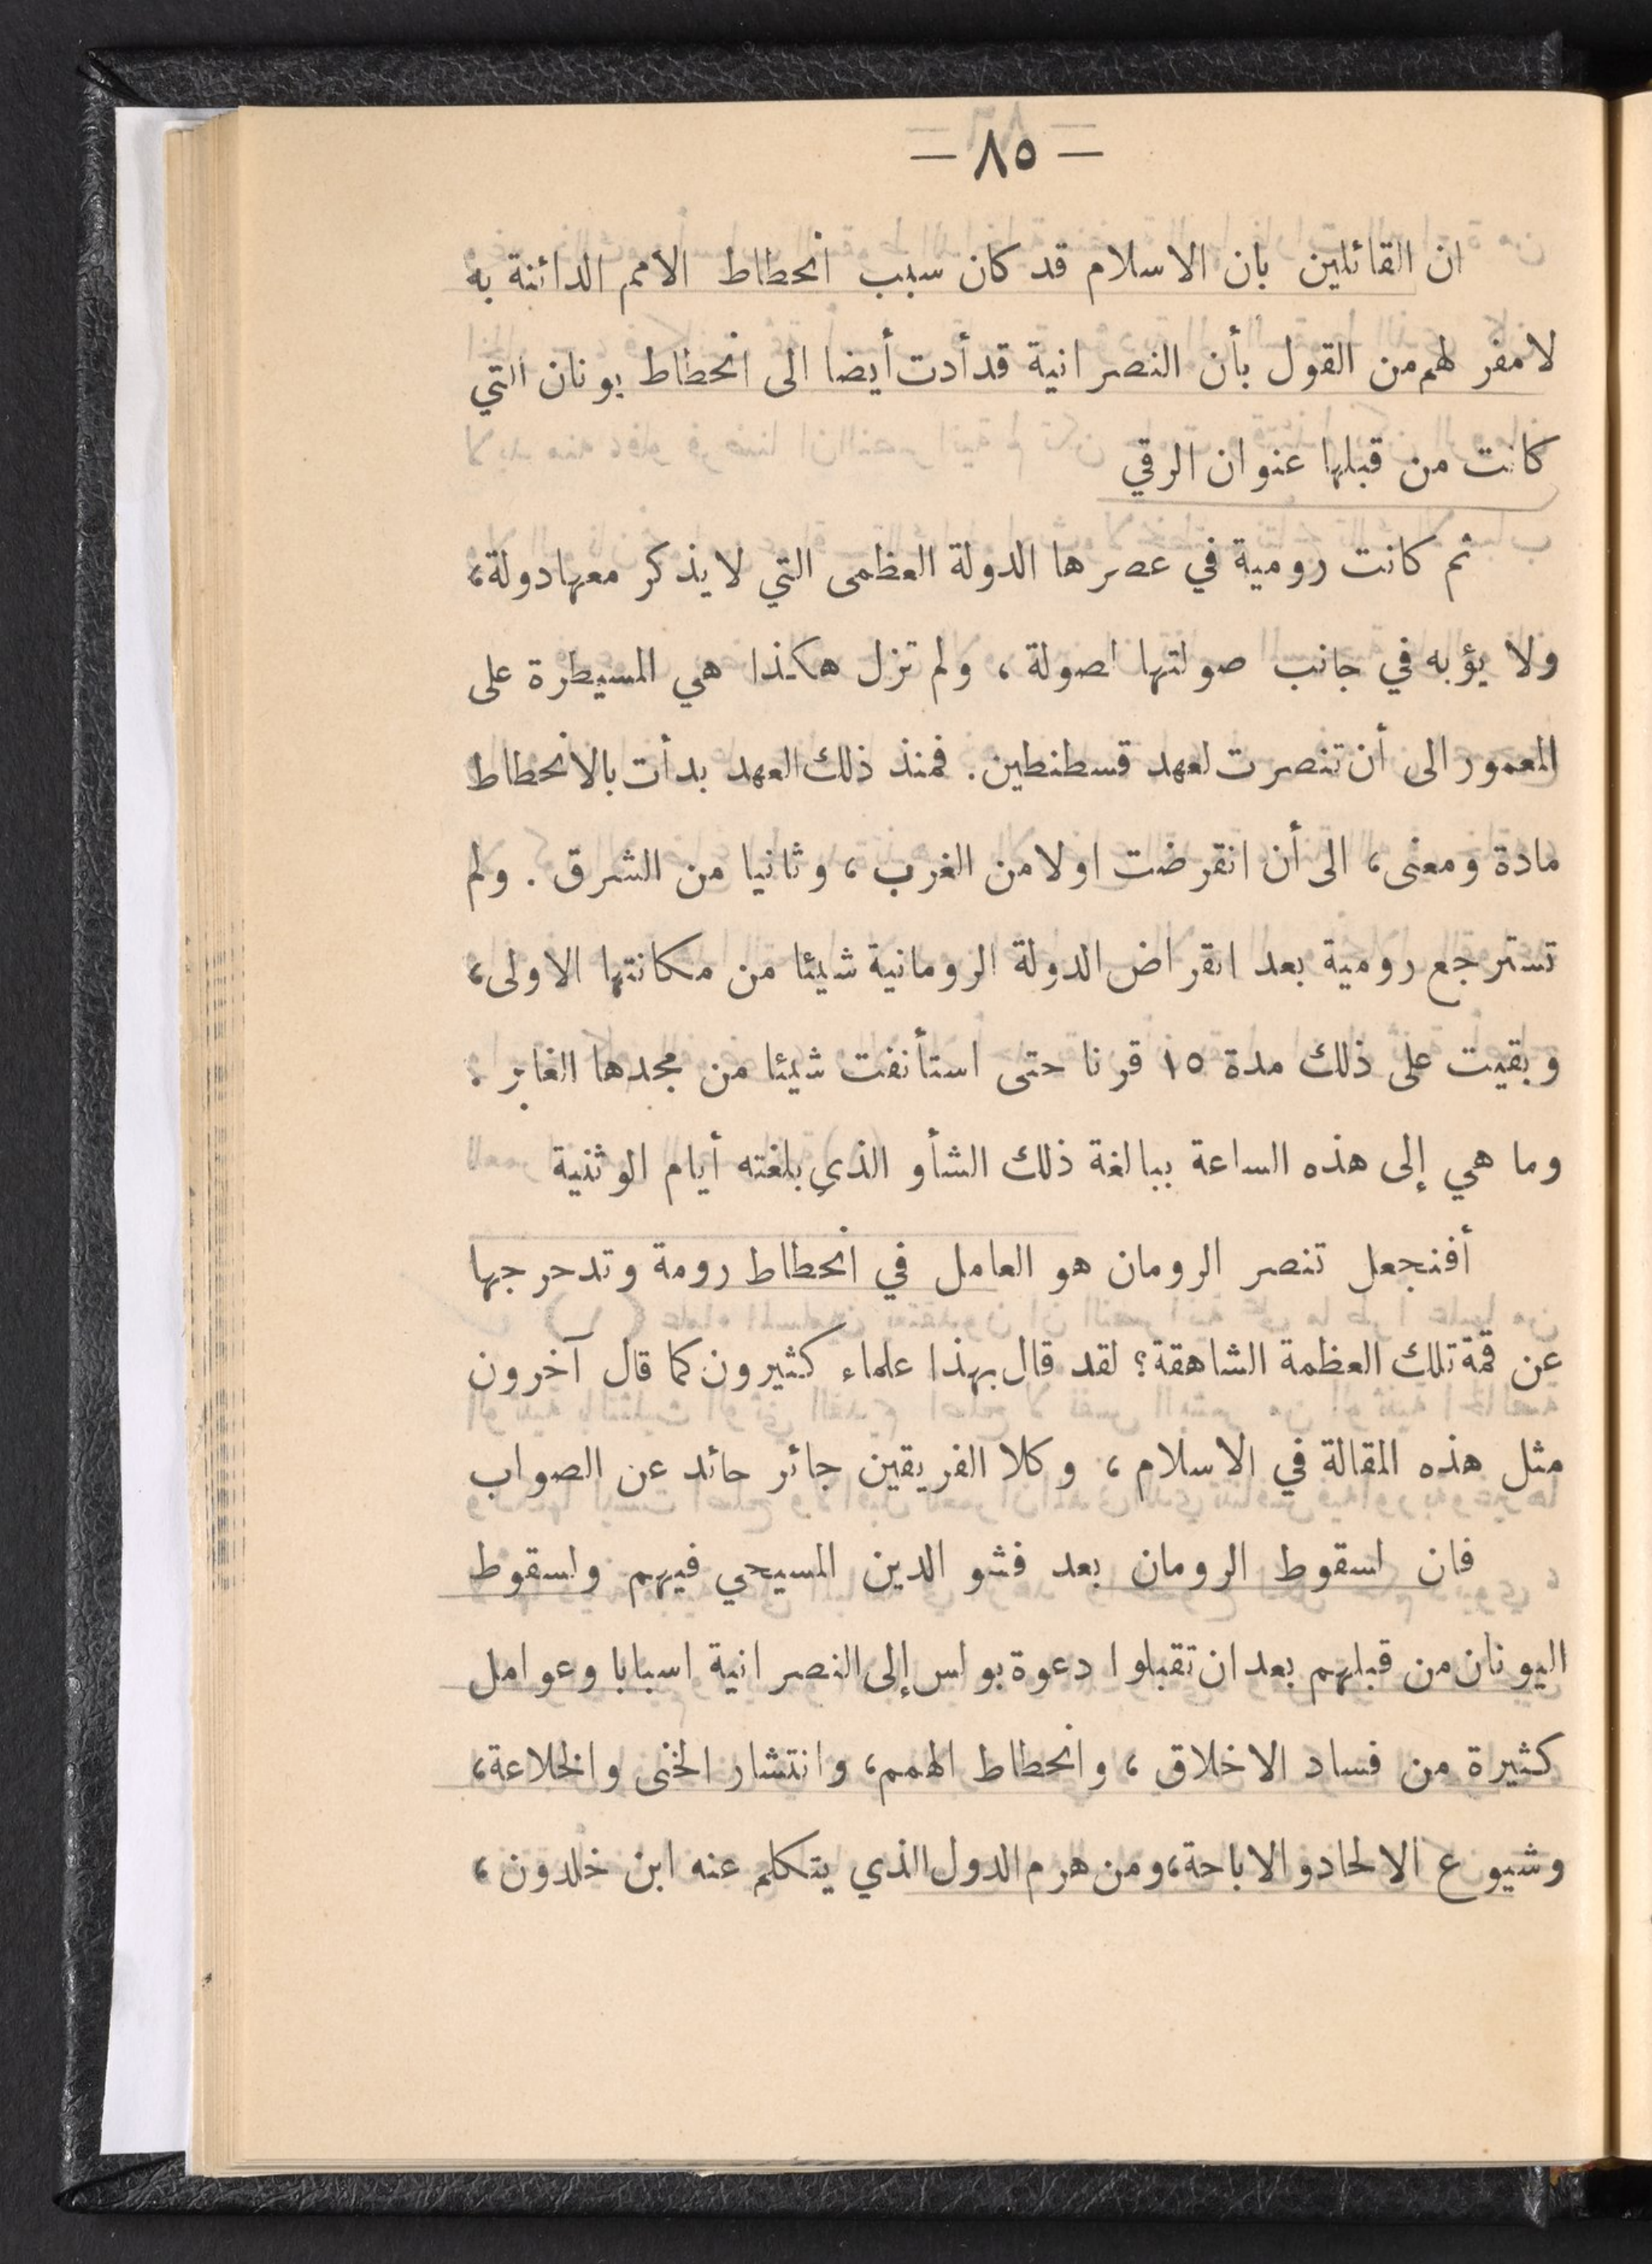 — ٨٥ —
ان القائلين بان الاسلام قد كان سبب انحطاط الامم الدائنة به
لا مفر لهم من القول بأن النصرانية قد أدت أيضا الى انحطاط يونان التي
كانت من قبلها عنوان الرقي
ثم كانت رومية في عصرها الدولة العظمى التي لا يذكر معها دولة،
ولا يؤبه في جانب صولتها لصولة ، ولم تزل هكذا هي المسيطرة على
المعمور الى أن تنصرت لعهد قسطنطين. فمنذ ذلك العهد بدأت بالانحطاط
مادة ومعنى، الى أن انقرضت اولا من الغرب، وثانيا من الشرق . ولم
تسترجع رومية بعد انقراض الدولة الرومانية شيئا من مكانتها الاولى،
وبقيت على ذلك مدة ١٥ قرنا حتى استأنفت شيئا من مجدها الغابر .
وما هي إلى هذه الساعة ببالغة ذلك الشأو الذي بلغته أيام الوثنية
أفنجعل تنصر الرومان هو العامل في انحطاط رومة وتدحرجها
عن قمة تلك العظمة الشاهقة؟ لقد قال بهذا علماء كثيرون كما قال آخرون
مثل هذه المقالة في الاسلام ، وكلا الفريقين جائر حائد عن الصواب
فان لسقوط الرومان بعد فشو الدين المسيحي فيهم ولسقوط
اليونان من قبلهم بعد ان تقبلوا دعوة بولس إلى النصرانية اسبابا وعوامل
كثيرة من فساد الاخلاق ، وانحطاط الهمم، وانتشار الخنى والخلاعة،
وشيوع الالحاد والاباحة، ومن هرم الدول الذي يتكلم عنه ابن خلدون ،